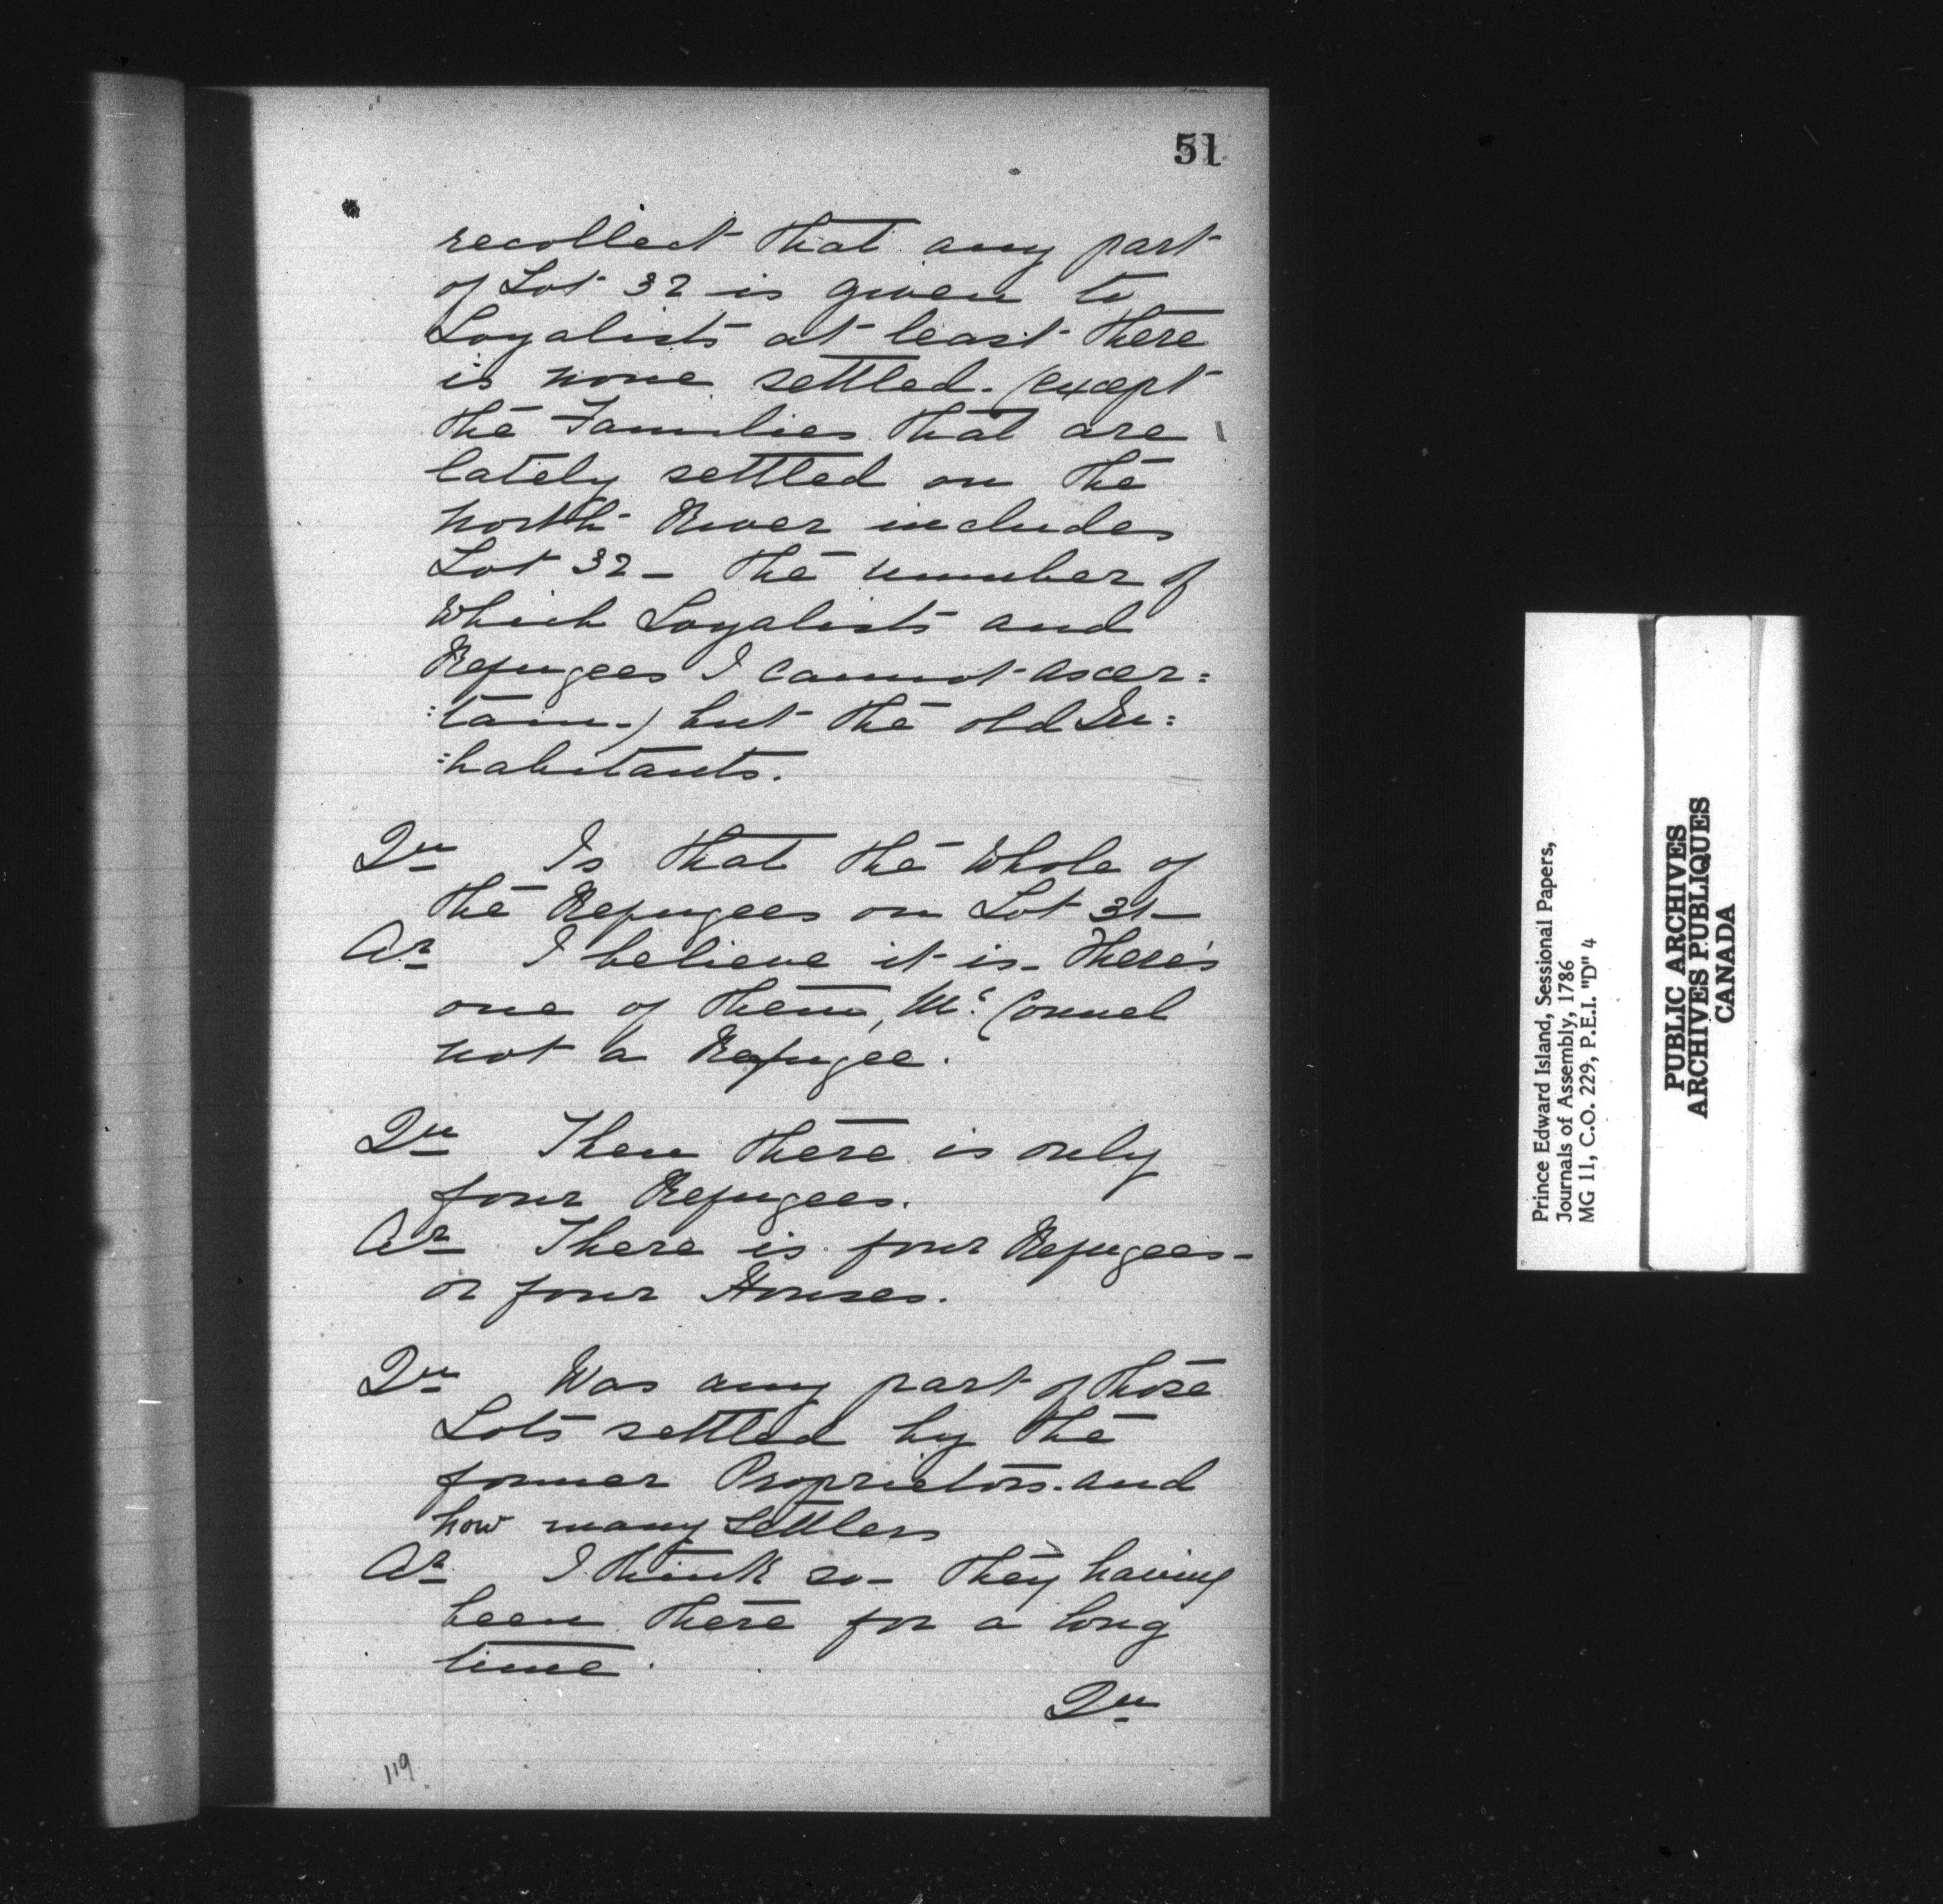 51
recollect that any part
of Lot 32 is given to
Loyalists at least there
is none settled. (except
the Families that are
lately settled on the
North River includes
Lot 32 - the number of
which Loyalists and
Refugees I cannot ascer=
:tain.) but the old In:
:habitants.
Qu Is that the whole of
the Refugees on Lot 31-
Ar I believe it is - there's
one of them, Mc. Connel
not a Refugee.
Qu Then there is only
four Refugees.
Ar There is four Refugees-
or four Houses.
Qu Was any part of those
Lots settled by the
former Proprietors. and
how many settlers
Ar I think so - they having
been there for a long
time.
Qu
119
Prince Edward Island, Sessional Papers,
Journals of Assembly, 1786
MG 11, C.O. 229, P.E.I. "D" 4
PUBLIC ARCHIVES
ARCHIVES PUBLIQUES
CANADA